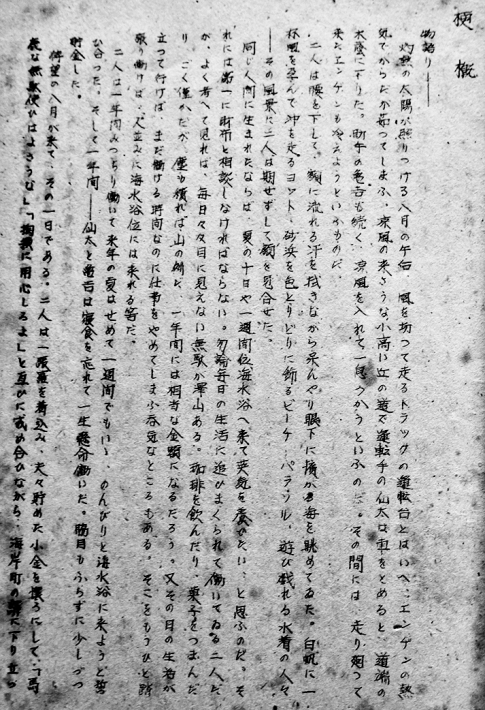 梗概
物語り――
灼熱の太陽が照りつける八月の午后、風を切つて走るトラックの運転台とはいへ、エンヂンの熱
気でからだが茹つてしまふ、涼風の来さうな小高い丘の道で運転手の仙太は車をとめると、道端の
木蔭に下りた。助手の亀吉も続く、涼風を入れて一息つかうといふのだ。その間には、走り廻つて
来たエンヂンも冷えようといふものだ。
二人は腰を下して、額に流れる汗を拭きながら呆んやり眼下に擴がる海を眺めてゐた。白帆に一
杯風を孕んで沖を走るヨット、砂浜を色とりどりに飾るビーチ・パラソル、遊び戯れる水着の人々
――その風景に二人は期せずして顔を見合せた。
同じ人間に生まれたならば、夏の十日や一週間位海水浴へ来て英気を養ひたい、と思ふのだ。そ
れには第一に財布と相談しなければならない。勿論毎日の生活に追ひまくられて働いてゐる二人だ
が、よく考へて見れば、毎日々々目に見えない無駄が沢山ある。珈琲を飲んだり、菓子をつまんだ
り、ごく僅かだが、塵も積れば山の例だ、一年間には相当な金額になるだらう。又その日の生活が
立つて行けば、まだ働ける時間なのに仕事をやめてしまふ呑気なところもある。そこをもうひと踏
張り働けば、人並みに海水浴位には来れる筈だ。
二人は一年間みつちり働いて来年の夏はせめて一週間でもいゝ、のんびりと海水浴に来ようと誓
ひ合つた。そして一年間――仙太と亀吉は寝食を忘れて一生懸命働いた。脇目もふらずに少しづつ
貯金した。
待望の八月が来て、その一日である。二人は一張羅を着込み、夫々貯めた小金を懐ろにして、「馬
鹿な無駄使ひはよさうな」「掏摸に用心しろよ」と互ひに戒め合ひながら、海岸町の駅に下り立つ